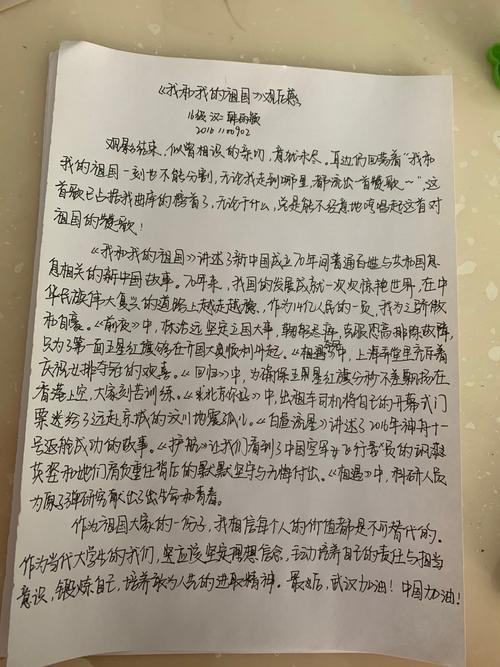 《我和我的祖国》观后感
16级 汉二
2016 1100902
观影结束，似曾相识的亲切，意犹未尽。耳边仍回荡着“我和
我的祖国一刻也不能分割，无论我走到哪里，都流出一首赞歌～”，这
首歌已占据我曲库的榜首了，无论干什么，总是能不经意地哼唱起这首对
祖国的赞歌！
《我和我的祖国》讲述了新中国成立70年间普通百姓与共和国息
息相关的新中国故事。70年来，我国的发展成就一次次惊艳世界，在中
华民族伟大复兴的道路上越走越稳，作为14亿人民的一员，我为之骄傲
和自豪。《前夜》中，林治远坚定立国大事，克服恐高排除故障，
只为了第一面五星红旗能在开国大典顺利升起。《相遇》中，上海弄堂里充斥着
庆祝女排夺冠的欢喜。《回归》中，为确保五星红旗分秒不差飘扬在
香港上空，大家刻苦训练。《北京你好》中，出租车司机将自己的开幕式门
票送给了远赴京城的汶川地震孤儿。《白昼流星》讲述了2016年神舟十一
号返航成功的故事。《护航》让我们看到了中国空军女飞行员的飒爽
英姿和她们肩负重任背后的默默坚守与无悔付出。《相遇》中，科研人员
为原子弹研究献出了生命和青春。
作为祖国大家的一份子，我相信每个人的价值都是不可替代的。
作为当代大学生的我们，更应该坚定理想信念，主动培养自己的责任与担当
意识，锻炼自己，培养敢为人先的进取精神。最后，武汉加油！中国加油！